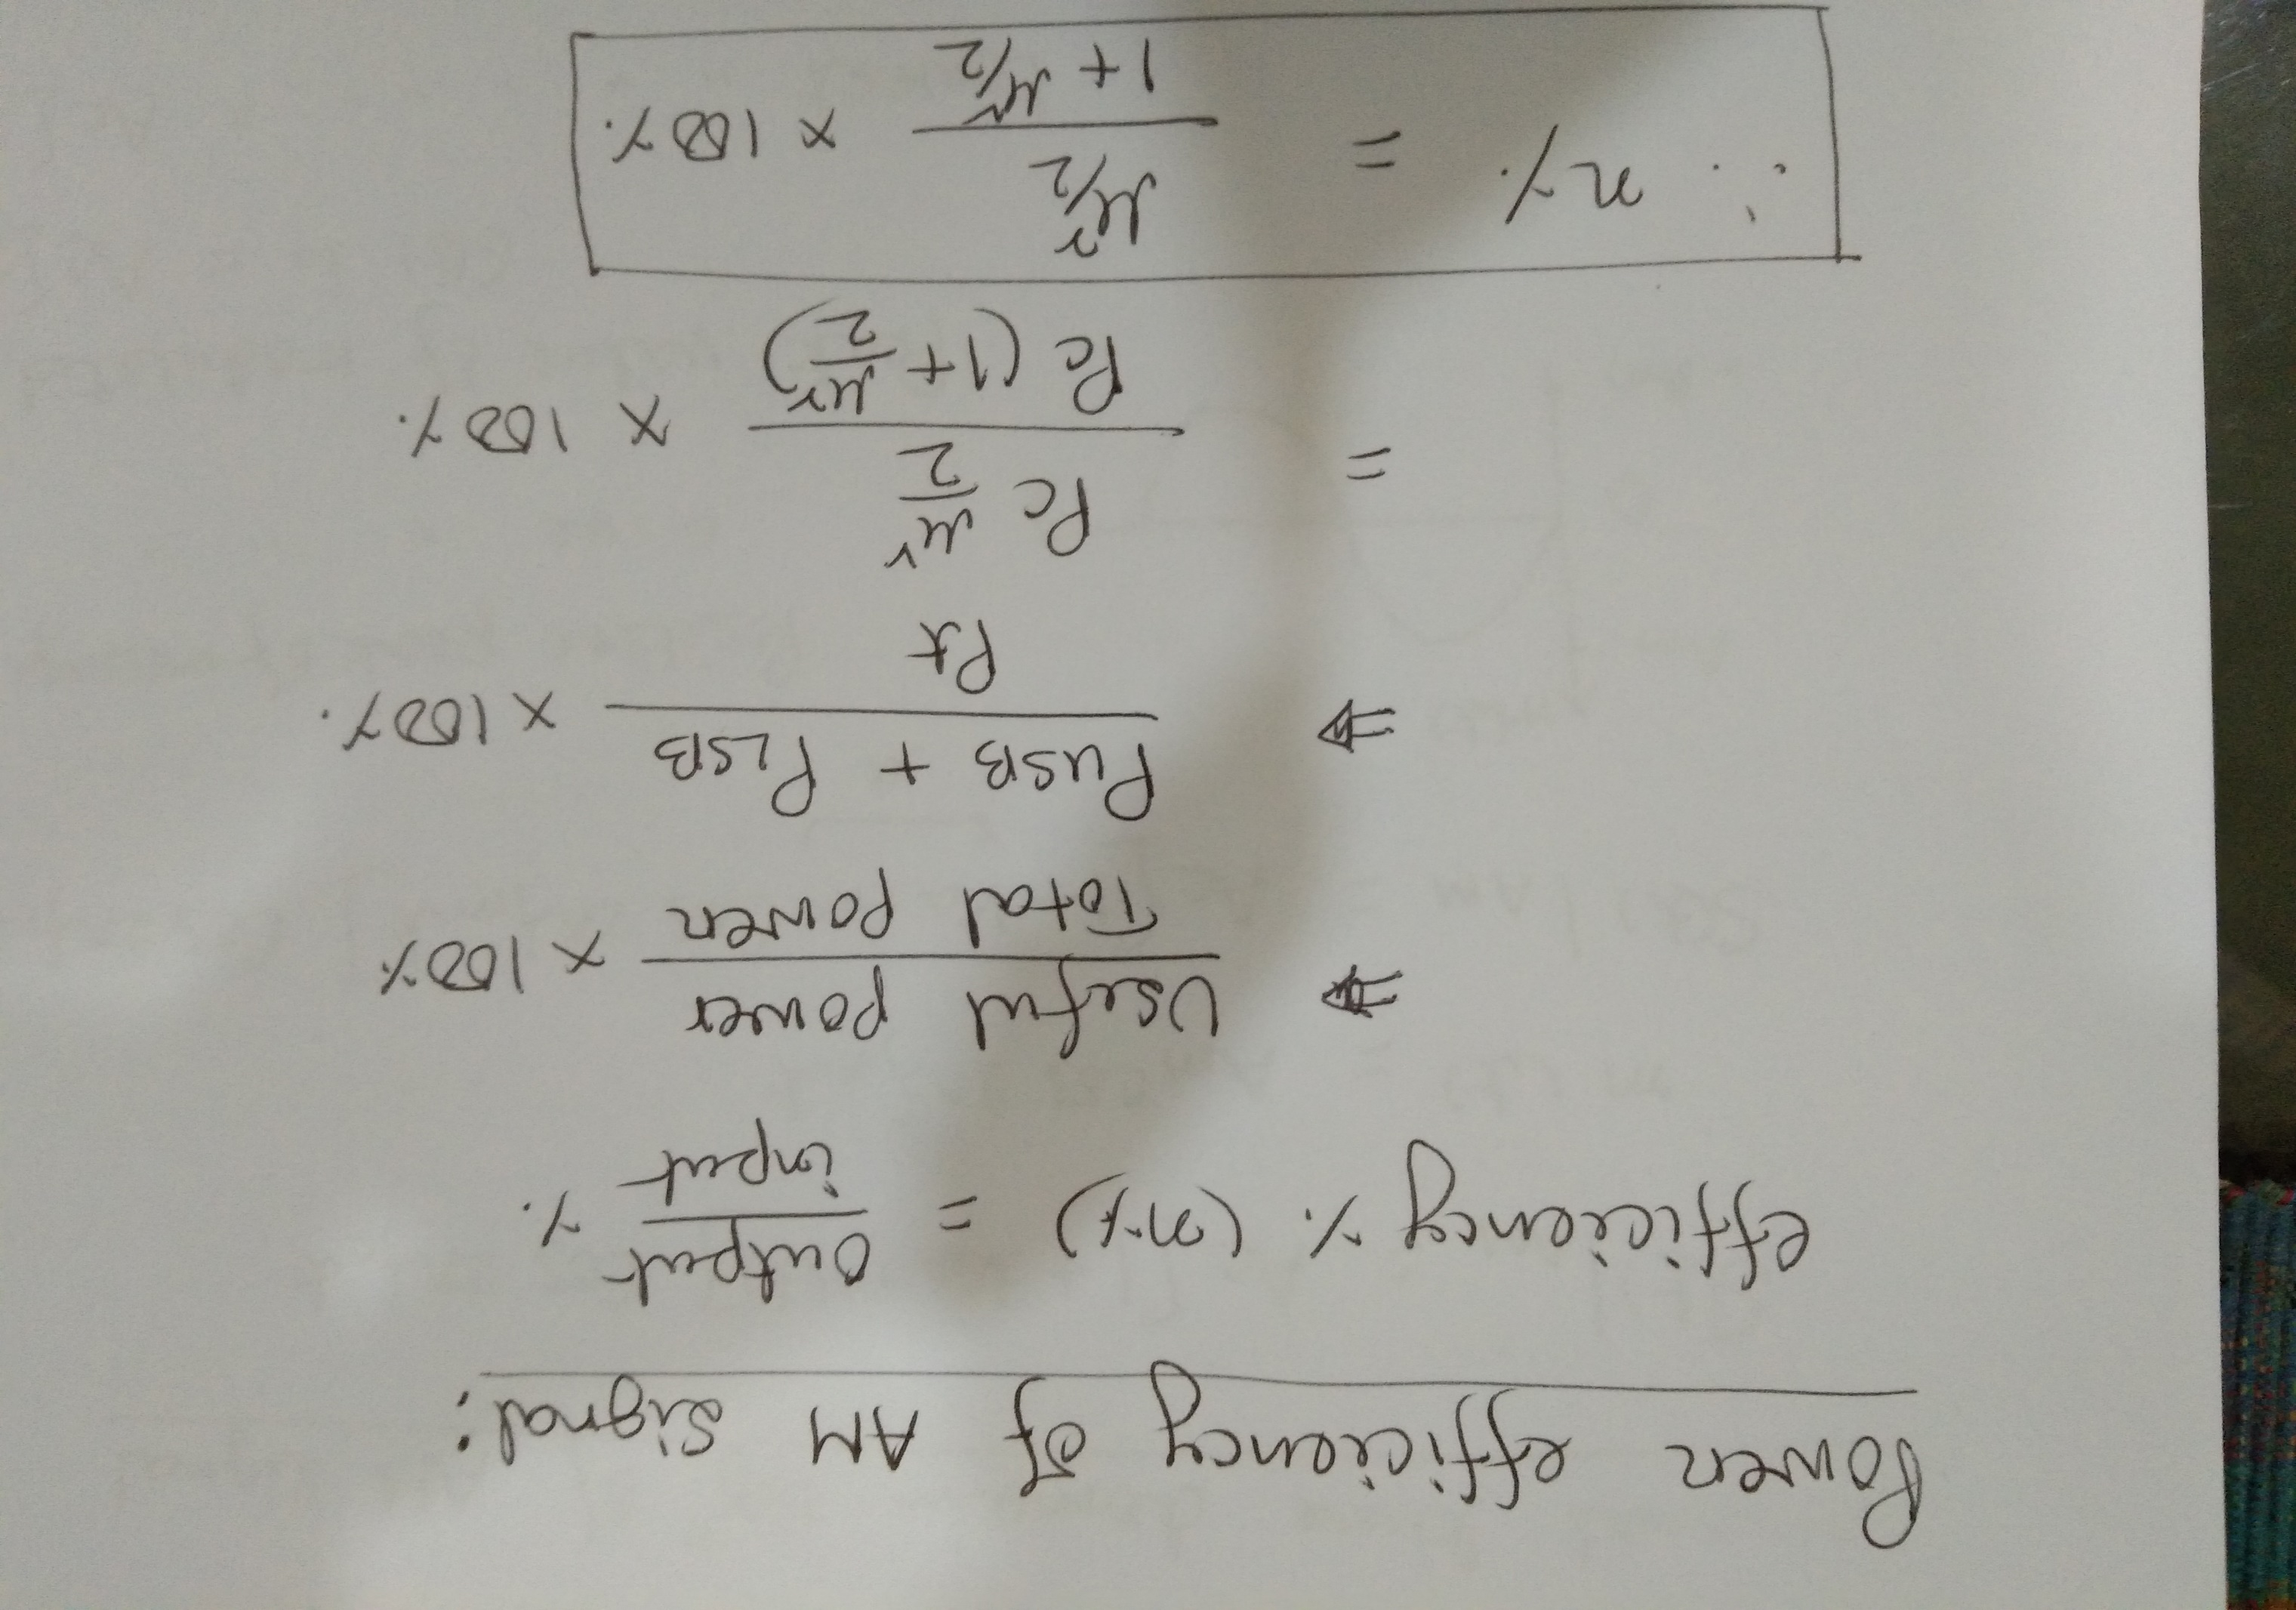 Power efficiency of AM signal:
efficiency % (η%) = output / input %
⇒ Useful power / Total power × 100%
⇒ PUSB + PLSB / Pt × 100%
= Pc μ²/2 / Pc (1 + μ²/2) × 100%
∴ η% = μ²/2 / 1 + μ²/2 × 100%